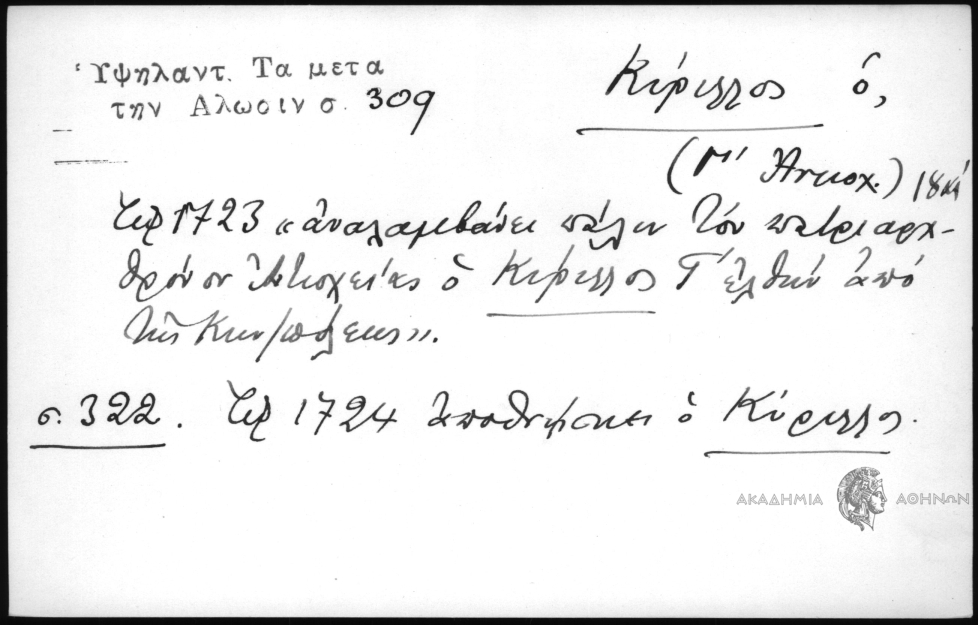 Ὑψηλαντ. Τα μετα
την Αλωσιν σ. 309
Κύριλλος ὁ,
(Γ' Ἀντιοχ.)
Τῷ 1723 «ἀναλαμβάνει πάλιν τὸν πατριαρχ-
θρόνον Ἀντιοχείας ὁ Κύριλλος Γ' ἐλθὼν ἀπὸ
τῆς Κων/πόλεως».
σ. 322. Τῷ 1724 ἀποθνήσκει ὁ Κύριλλος.
ΑΚΑΔΗΜΙΑ ΑΘΗΝΩΝ